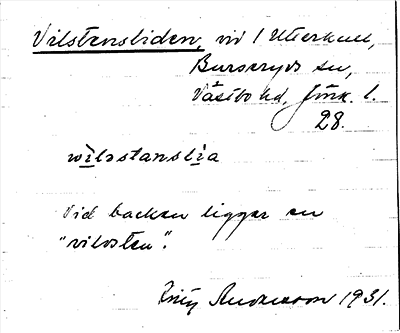 Vilstensliden, vid 1 Utterkull,
Burseryds sn,
Västbo hd, Jönk. l.
28.
wiləstanslia
Vid backen ligger en
"vilosten".
Andersson 1931.